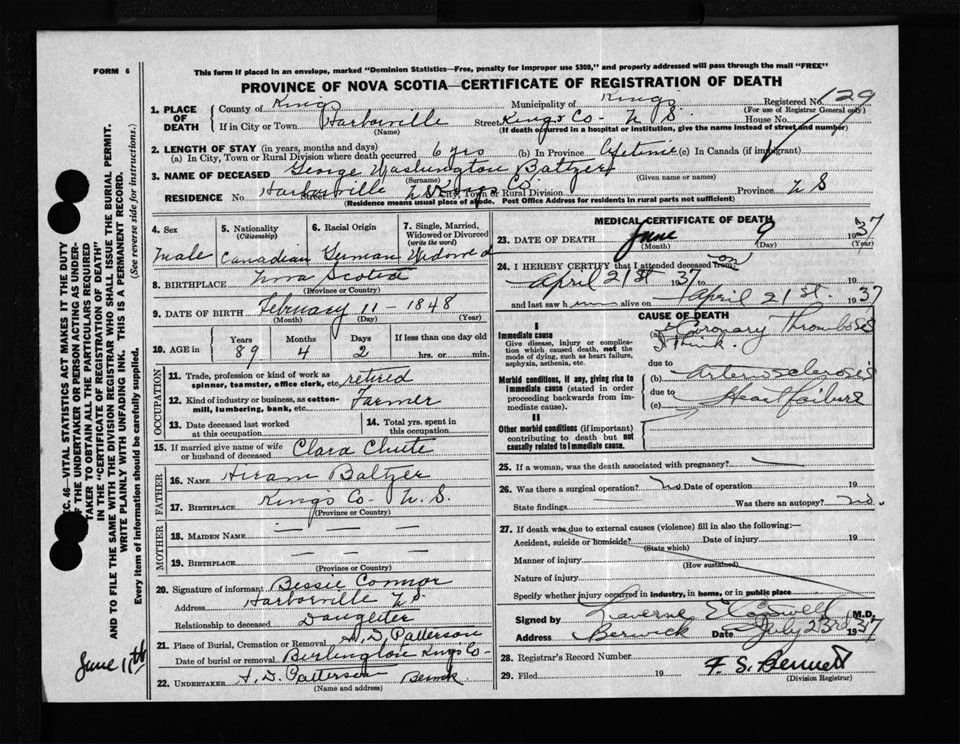 FORM 6
This form if placed in an envelope, marked "Dominion Statistics—Free, penalty for improper use $300," and properly addressed will pass through the mail "FREE"
PROVINCE OF NOVA SCOTIA—CERTIFICATE OF REGISTRATION OF DEATH
1. PLACE OF DEATH County of Kings Municipality of Kings Registered No. 129
(For use of Registrar General only)
If in City or Town Harborville Street Kings Co. N. S. House No.
(Name) (If death occurred in a hospital or institution, give the name instead of street and number)
2. LENGTH OF STAY (in years, months and days)
(a) In City, Town or Rural Division where death occurred 6 yrs (b) In Province lifetime (c) In Canada (if immigrant)
3. NAME OF DECEASED George Washington Baltzer
(Surname) (Given name or names)
RESIDENCE No. Harborville Street N S Kings Co. City, Town or Rural Division Province N S
(Residence means usual place of abode. Post Office Address for residents in rural parts not sufficient)
4. Sex 5. Nationality 6. Racial Origin 7. Single, Married, Widowed or Divorced
(Citizenship) (write the word)
Male Canadian German Widowed
8. BIRTHPLACE Nova Scotia
(Province or Country)
9. DATE OF BIRTH February 11 - 1848
(Month) (Day) (Year)
10. AGE in Years Months Days If less than one day old
89 4 2 hrs. or min.
OCCUPATION
11. Trade, profession or kind of work as spinner, teamster, office clerk, etc. retired
12. Kind of industry or business, as cotton-mill, lumbering, bank, etc. Farmer
13. Date deceased last worked at this occupation
14. Total yrs. spent in this occupation
15. If married give name of wife or husband of deceased Clara Chute
FATHER
16. NAME Hiram Baltzer
17. BIRTHPLACE Kings Co- N. S.
(Province or Country)
MOTHER
18. MAIDEN NAME — —
19. BIRTHPLACE — — —
(Province or Country)
20. Signature of informant Bessie Connor
Address Harborville N.S.
Relationship to deceased Daughter
21. Place of Burial, Cremation or Removal A. D. Patterson
Date of burial or removal Burlington Kings Co-
June 11th
22. UNDERTAKER A. D. Patterson Berwick
(Name and address)
MEDICAL CERTIFICATE OF DEATH
23. DATE OF DEATH June 9 1937
(Month) (Day) (Year)
24. I HEREBY CERTIFY that I attended deceased from on
April 21st 1937 to 19
and last saw h alive on April 21st. 1937
CAUSE OF DEATH
I
Immediate cause
Give disease, injury or complication which caused death, not the mode of dying, such as heart failure, asphyxia, asthenia, etc.
(a) Coronary Thrombosis
I think.
due to
Morbid conditions, if any, giving rise to immediate cause (stated in order proceeding backwards from immediate cause).
(b) Arteriosclerosis
due to
(c) Heart failure
II
Other morbid conditions (if important) contributing to death but not causally related to immediate cause.
25. If a woman, was the death associated with pregnancy? —
26. Was there a surgical operation? no Date of operation 19
State findings — Was there an autopsy? no.
27. If death was due to external causes (violence) fill in also the following:—
Accident, suicide or homicide? Date of injury 19
(State which)
Manner of injury
(How sustained)
Nature of injury
Specify whether injury occurred in industry, in home, or in public place
Signed by Laverne E Cogswell M.D.
Address Berwick Date July 23rd 1937
28. Registrar's Record Number
29. Filed 19 F. S. Bennett
(Division Registrar)
SEC. 46—VITAL STATISTICS ACT MAKES IT THE DUTY
OF THE UNDERTAKER OR PERSON ACTING AS UNDER-
TAKER TO OBTAIN ALL THE PARTICULARS REQUIRED
IN THE "CERTIFICATE OF REGISTRATION OF DEATH"
AND TO FILE THE SAME WITH THE DIVISION REGISTRAR WHO SHALL ISSUE THE BURIAL PERMIT.
WRITE PLAINLY WITH UNFADING INK. THIS IS A PERMANENT RECORD.
Every item of information should be carefully supplied. (See reverse side for instructions.)